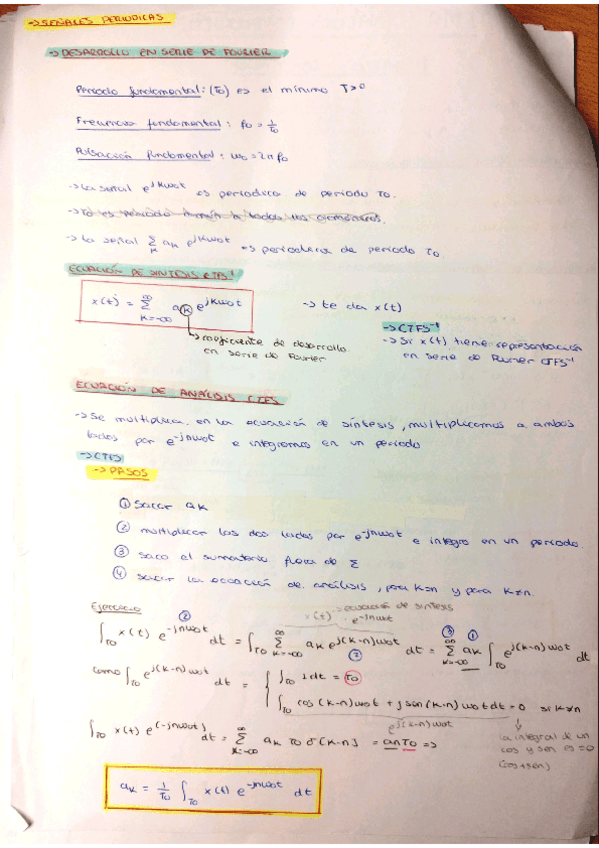 →SEÑALES PERIODICAS
→DESARROLLO EN SERIE DE FOURIER
Periodo fundamental: (T0) es el mínimo T>0
Frecuencia fundamental: f0 = 1/T0
Pulsación fundamental: ω0 = 2π f0
→La señal e^jkω0t es periodica de periodo T0.
→T0 es periodo común a todos los armónicos.
→La señal Σ_k ak e^jkω0t es periodica de periodo T0
ECUACIÓN DE SÍNTESIS CTFS⁻¹
x(t) = Σ_{k=-∞}^{∞} ak e^jkω0t → te da x(t)
→CTFS⁻¹
→coeficiente de desarrollo en serie de Fourier
→Si x(t) tiene representación en serie de Fourier CTFS⁻¹
ECUACIÓN DE ANÁLISIS CTFS
→Se multiplica en la ecuación de síntesis, multiplicamos a ambos
lados por e^-jnω0t e integramos en un periodo
→CTFS
→PASOS
① Sacar ak
② multiplicar los dos lados por e^-jnω0t e integro en un periodo.
③ saco el sumatorio fuera de Σ
④ sacar la ecuación de análisis, para k=n y para k≠n.
Ejercicio
x(t) → ecuación de síntesis
· e^-jnω0t
② ③ ①
∫_T0 x(t) e^-jnω0t dt = ∫_T0 Σ_{k=-∞}^{∞} ak e^j(k-n)ω0t dt = Σ_{k=-∞}^{∞} ak ∫_T0 e^j(k-n)ω0t dt
②
como ∫_T0 e^j(k-n)ω0t dt = { ∫_T0 1dt = T0
∫_T0 cos(k-n)ω0t + j sen(k-n)ω0t dt = 0 si k≠n
e^j(k-n)ω0t
∫_T0 x(t) e^(-jnω0t) dt = Σ_{k=-∞}^{∞} ak T0 δ[k-n] = anT0 =>
la integral de un
cos y sen es =0
(cos+sen)
ak = 1/T0 ∫_T0 x(t) e^-jnω0t dt